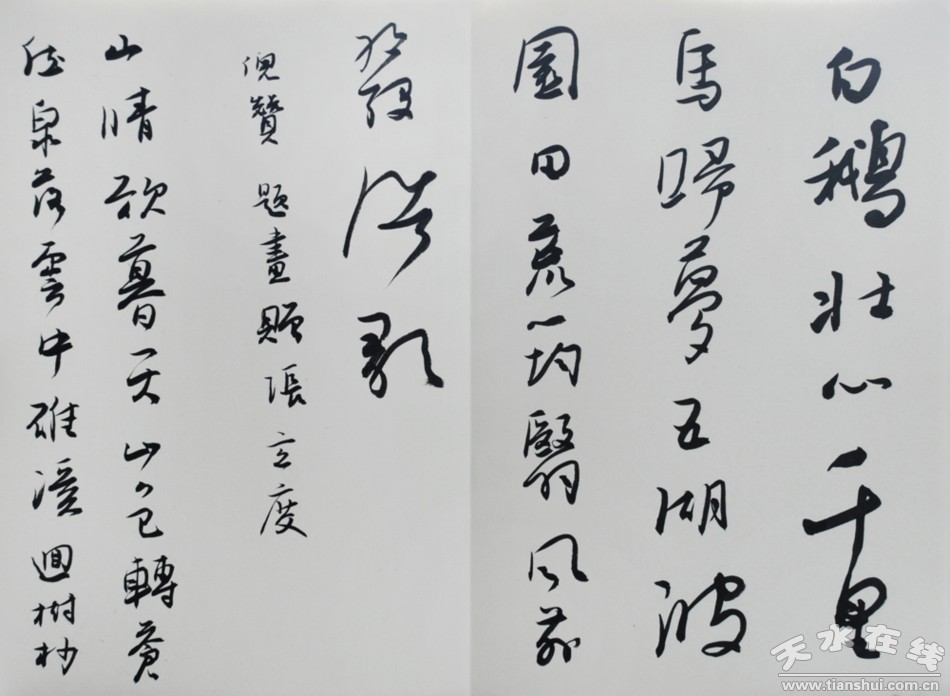 白鵝壯心千里
馬歸夢五湖波
園田荒筠翳風前
發浩歌
倪瓚題畫贈張玄度
山晴欲暮天山色轉蒼
然泉落雲中碓溪迴樹杪
天水在线
www.tianshui.com.cn